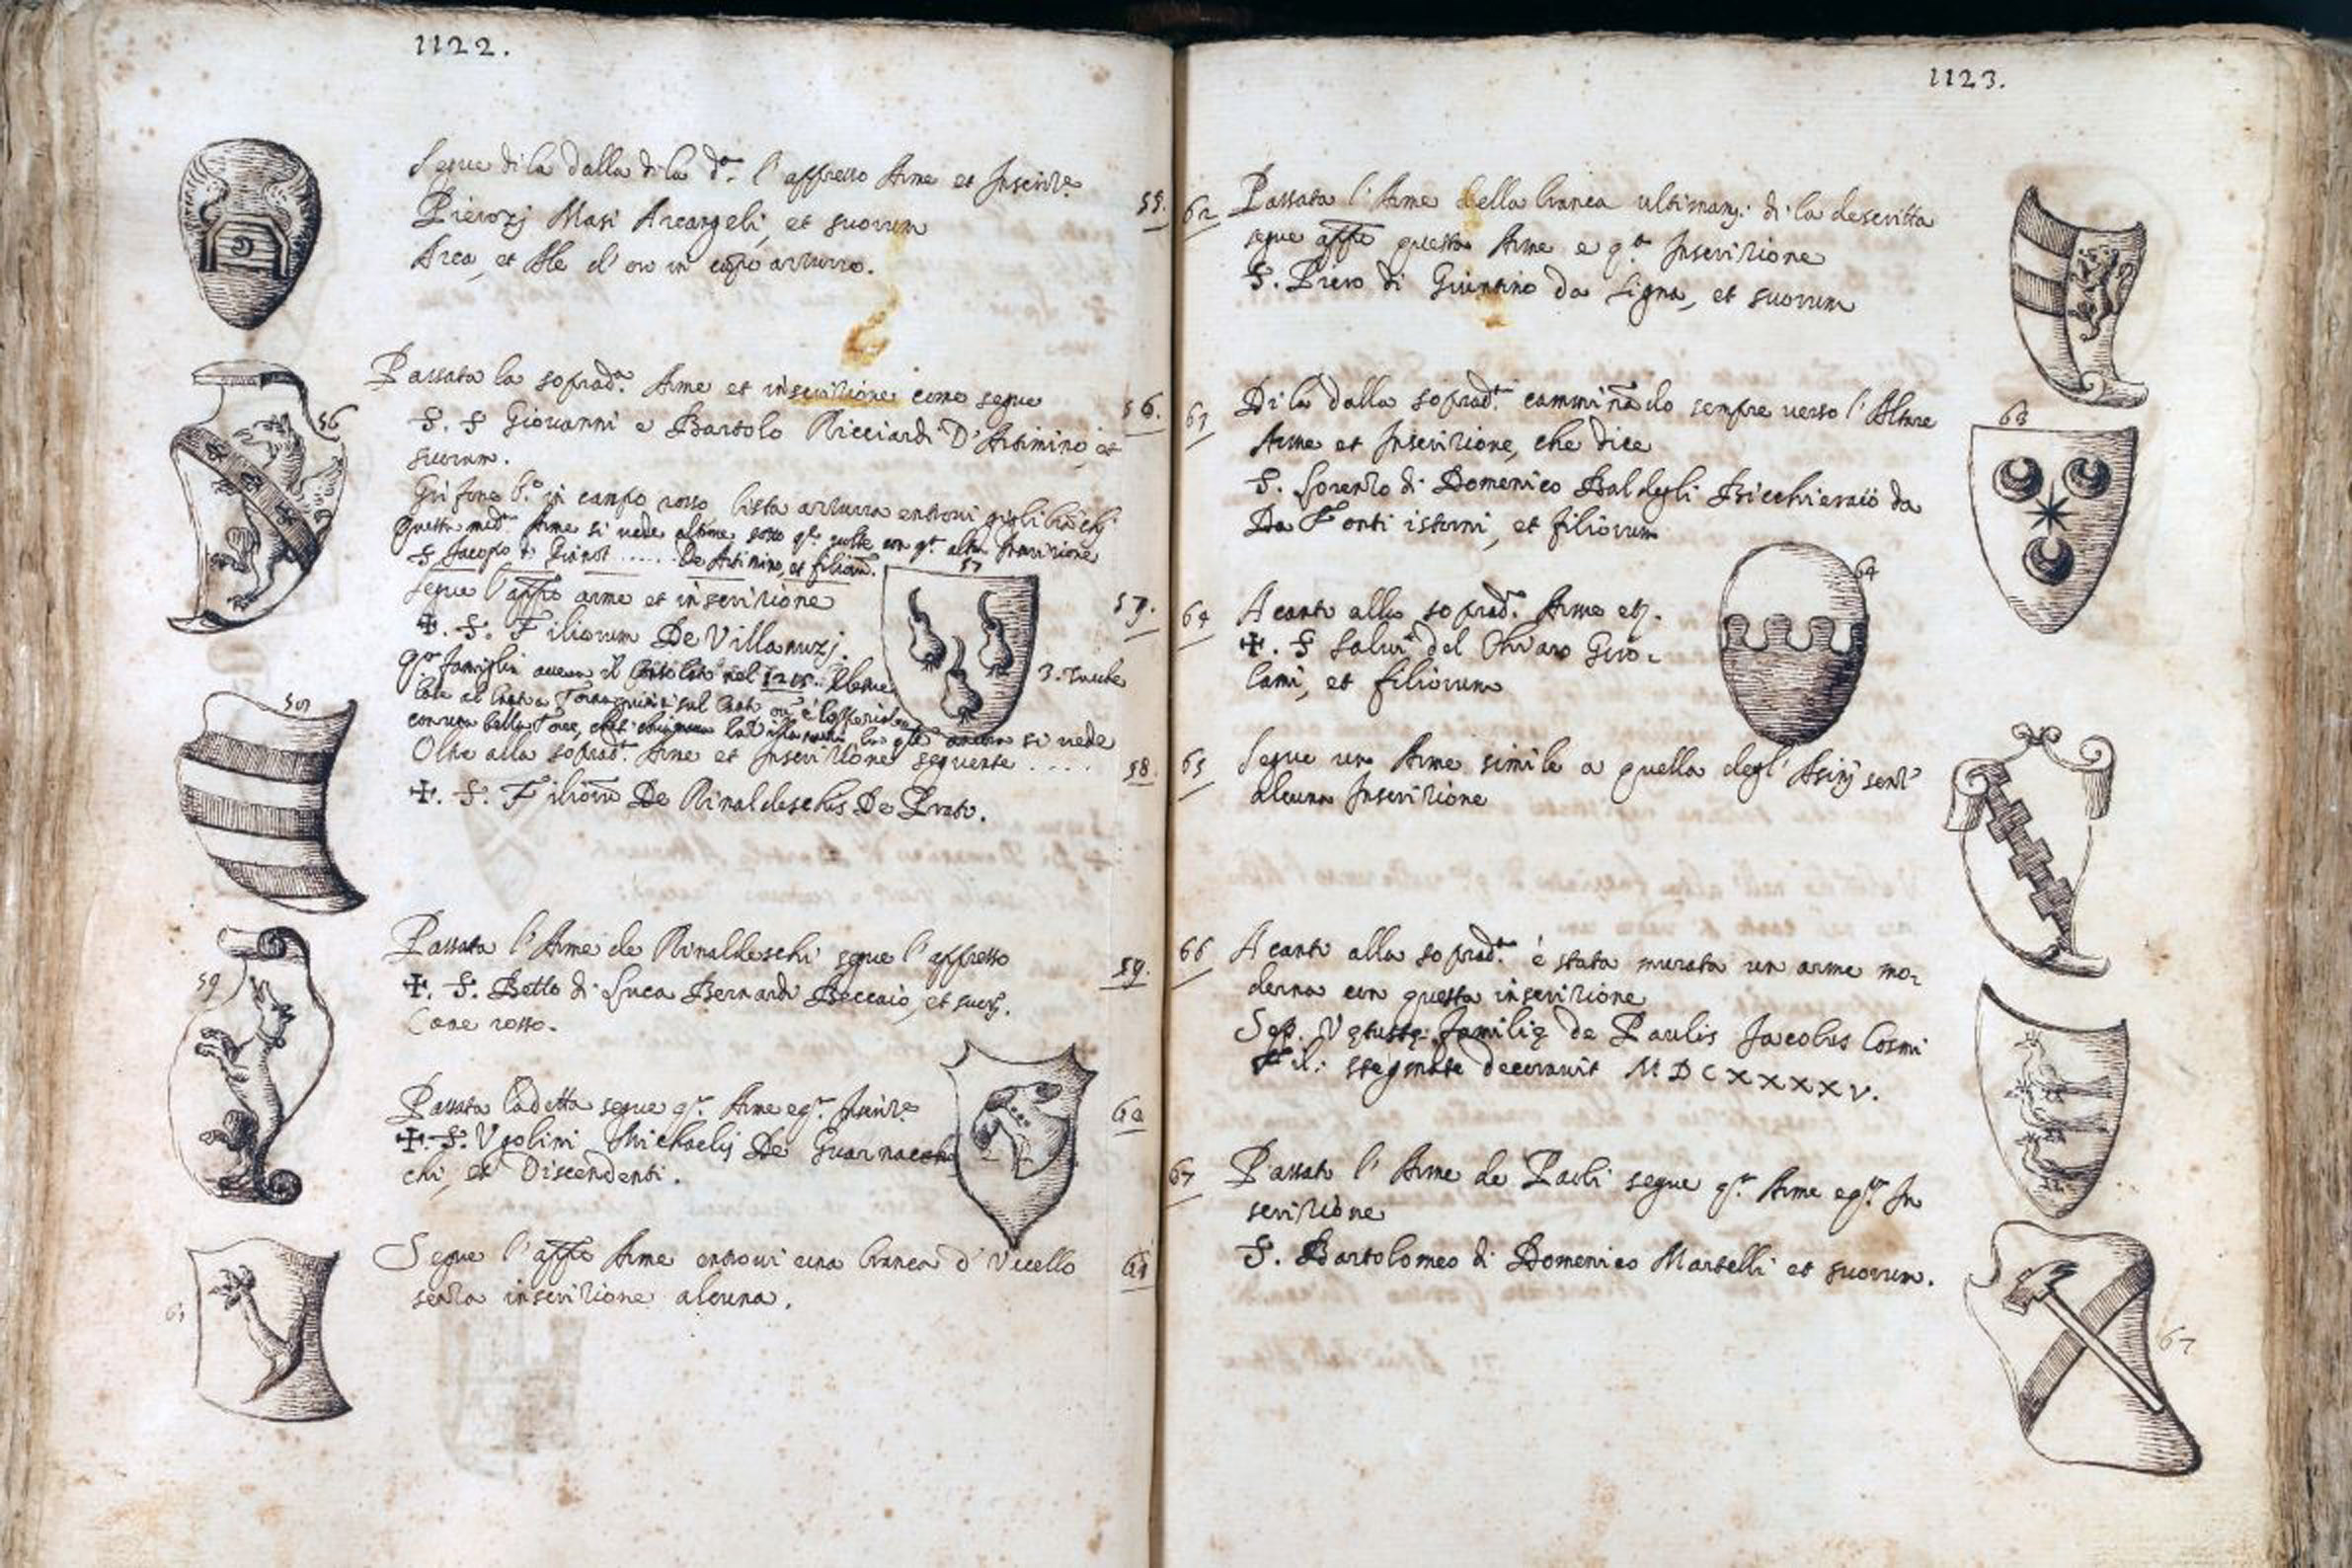 1122.
Segue di la dalla di la d.ᵃ l'appresso Arme et Inscriz.ᵉ
55.
Pierozj Masi Arcangeli, et suorum
Arca, et Ale d'oro in cāpo azzurro.
Passata la soprad.ᵃ Arme et inscrizione come segue
56.
56
S. S Giovanni e Bartolo Ricciardi D'Artimino, et
suorum.
Grifone b.ᵒ in campo rosso, lista azzurra entrovi gigli biāchi
questa med.ᵃ Arme si vede altrove sotto q.ᵉ volte con q.ᵃ altra Inscrizione
S Jacopo di Giānot...... De Artimino, et filiorū.
Segue l'app̄o arme et inscrizione
57.
57
✠. S. Filiorum De Villanuzj.
3. Zucche
q.ᵃ famiglia aveva il Consolato nel 1215.
con una bella Torre, si vede
Oltre alla soprad.ᵃ Arme et Inscrizione seguente ....
58.
58
✠. S. Filiorū De Rinaldeschis De Prato.
Passata l'Arme de Rinaldeschi segue l'appresso
59.
59
✠. S. Betto di Luca Bernardi Beccaio, et suor̄.
Cane rosso.
Passata La detta segue q.ᵃ Arme e q.ᵃ Inscriz.ᵉ
60
✠. S. Ugolini Michaelis De Guarnacchi
chi, et Discendenti.
Segue l'app̄o Arme entrovi una branca d'Uccello
61
61
senza inscrizione alcuna.
1123.
62 Passata l'Arme della branca ultimam̄. di la descritta
segue app̄o questa Arme e q.ᵃ Inscrizione
S. Piero di Giuntino da Signa, et suorum
63 Di la dalla soprad.ᵃ camminādo sempre verso l'Altare
63
Arme et Inscrizione, che dice
S. Lorenzo di Domenico Baldegli Bicchieraio da
Da Fonti isterni, et filiorum
64 Acanto alla soprad.ᵃ Arme etz.
64
✠. S Salvi del Chiaro Giro-
lami, et filiorum
65 Segue un Arme simile a quella degl'Asinj senz.ᵃ
alcuna Inscrizione
66 Acanto alla soprad.ᵃ è stata murata un arme mo-
derna con questa inscrizione
Sep. Vetustę familię de Paulis Jacobus Cosmi
Fil: stegmate decoravit MDCXXXXV.
67 Passat l'Arme de Paoli segue q.ᵃ Arme e q.ᵃ In
scrizione
S. Bartolomeo di Domenico Martelli et suorum.
67